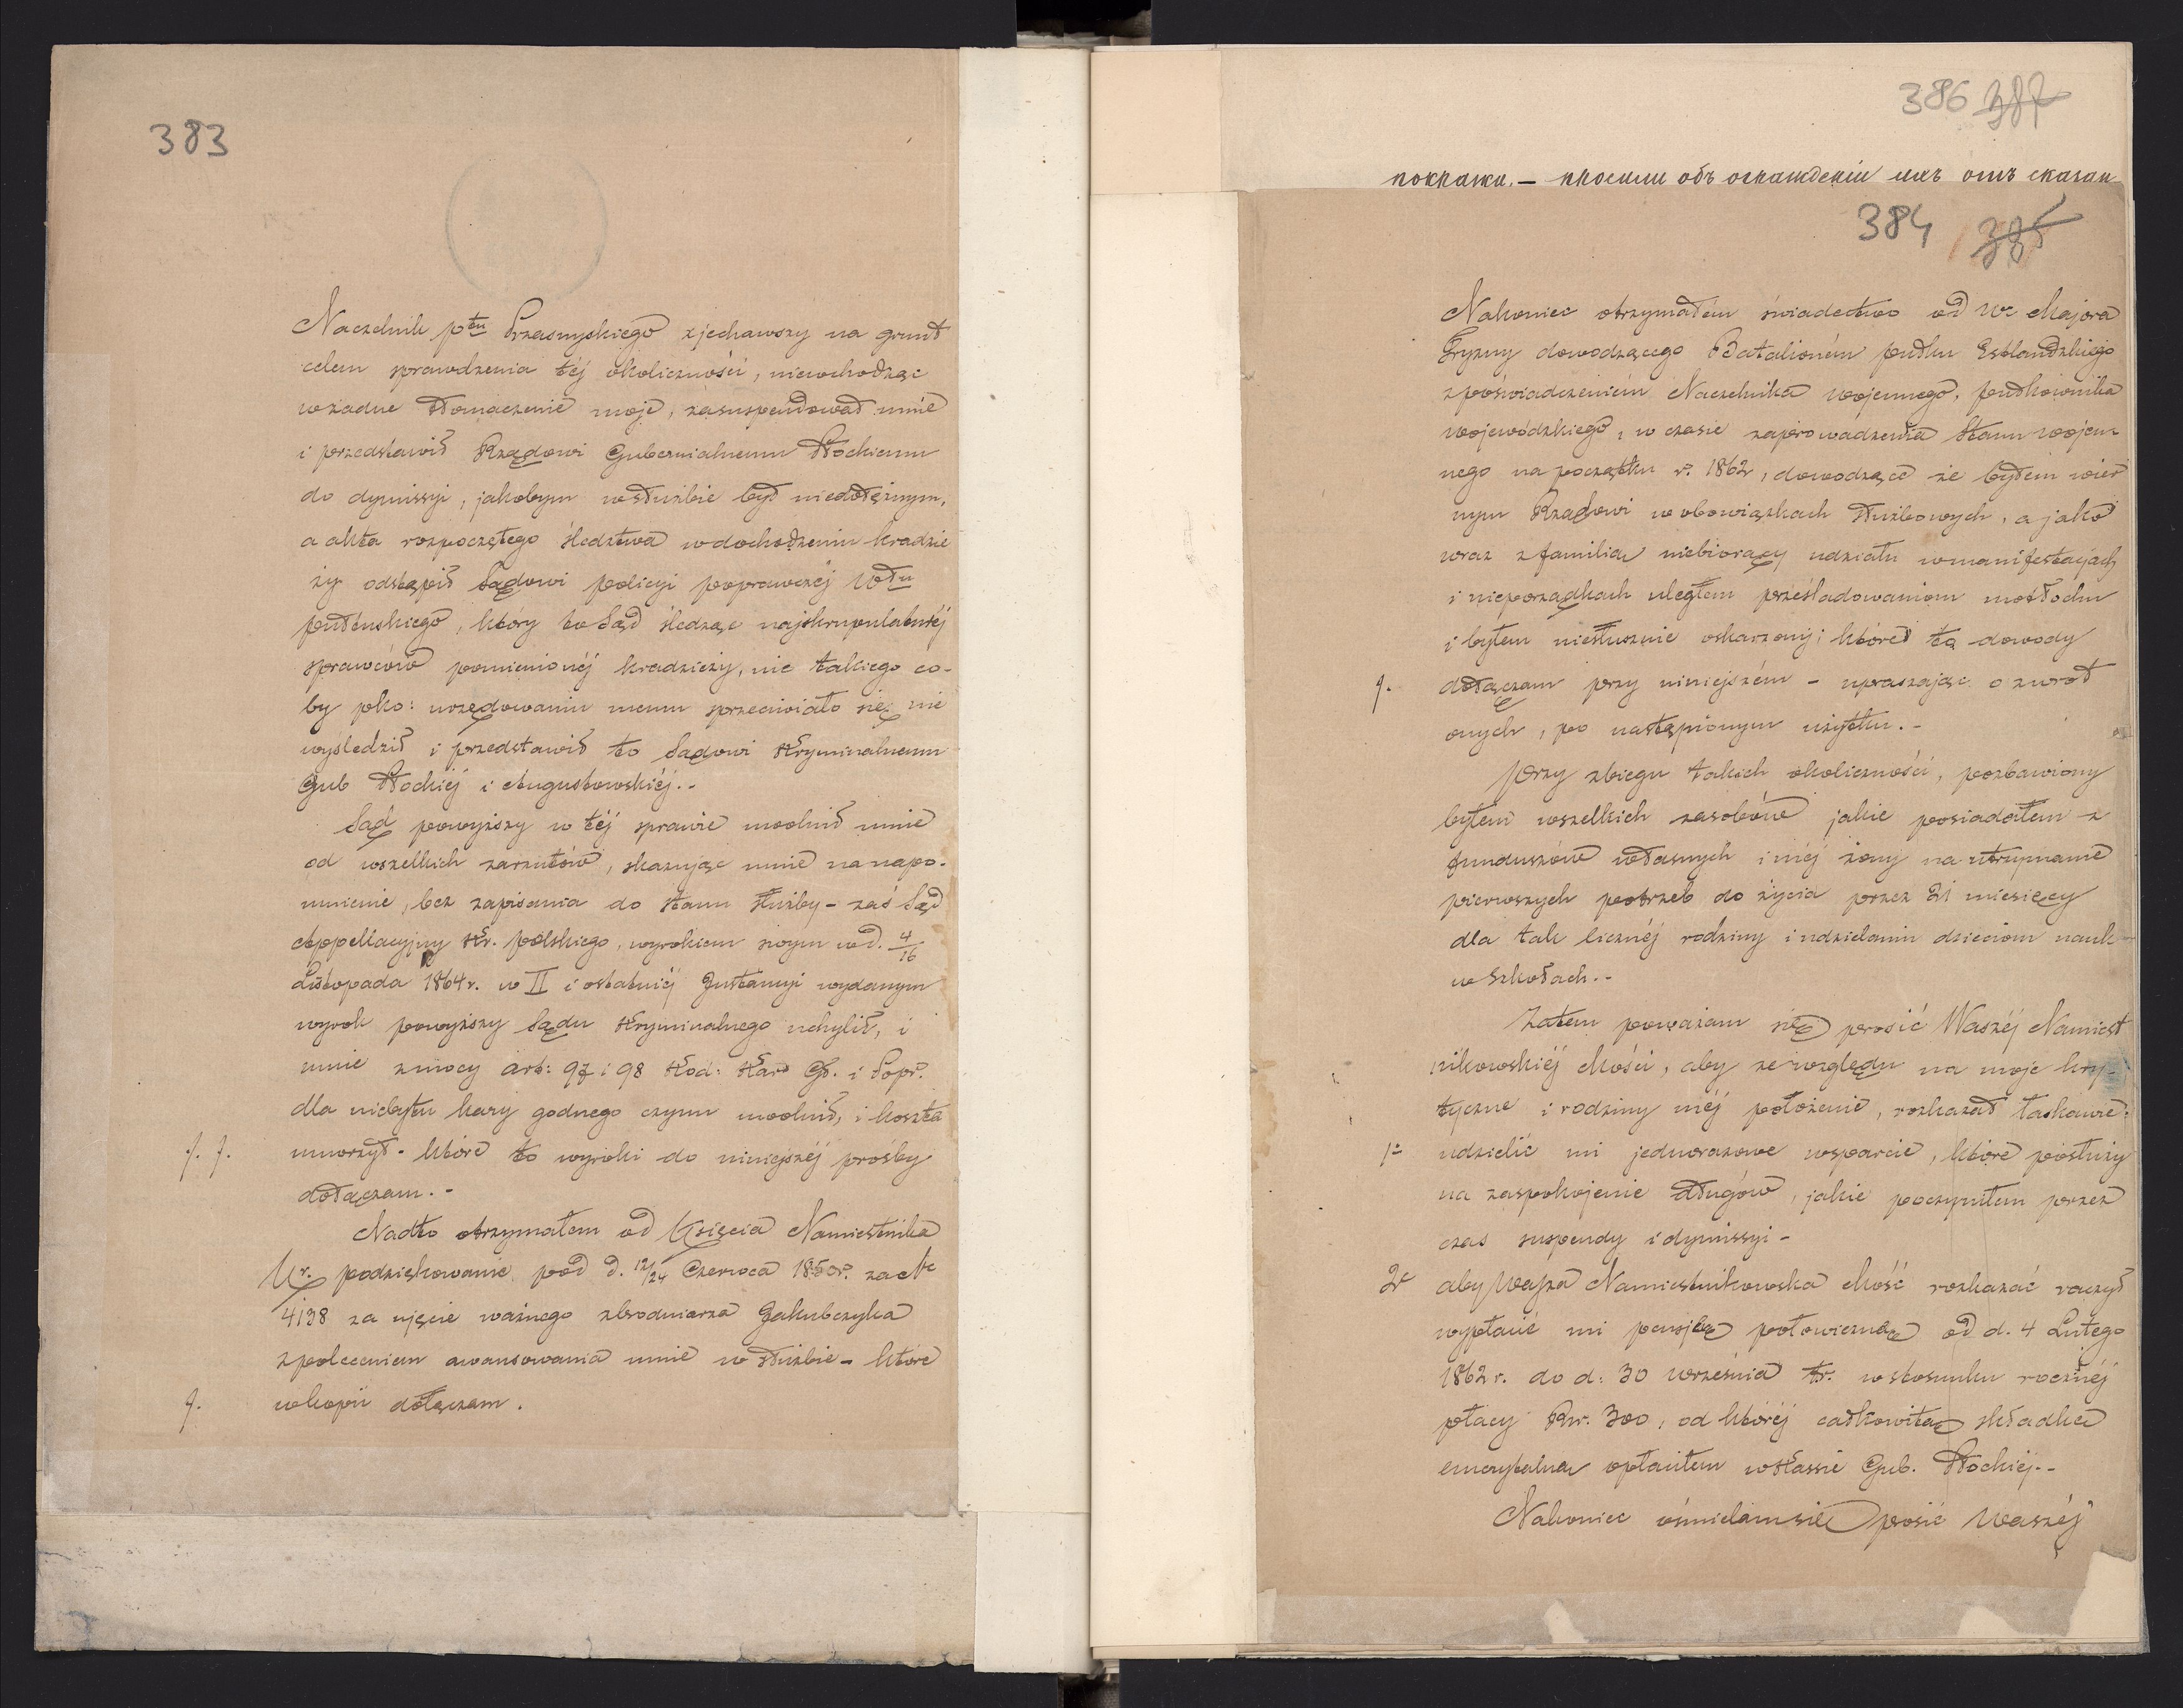 383
Naczelnik ptu Przasnyskiego zjechawszy na grunt
celem sprawdzenia téj okoliczności, niewchodząc
w żadne tłomaczenie moje, zasuspendował mnie
i przedstawił Rządowi Gubernialnemu Płockiemu
do dymissyi, jakobym w służbie był niedołężnym,
a akta rozpoczętego śledztwa w dochodzeniu kradzie
ży odstąpił Sądowi policyi poprawczéj Wdłu
Pułtuskiego, który to Sąd śledząc najskrupulatniéj
sprawców pomienionéj kradzieży, nic takiego co-
by pko: urzędowaniu memu sprzeciwiało się nie
wyśledził i przedstawił to Sądowi Kryminalnemu
Gub Płockiéj i Augustowskiéj.-
Sąd powyższy w téj sprawie uwolnił mnie
od wszelkich zarzutów, skazując mnie na napo-
mnienie, bez zapisania do stanu służby - zaś Sąd
Appellacyjny Kr. Polskiego, wyrokiem swym w d. 4/16
Listopada 1864 r. w II i ostatniéj Instancyi wydanym
wyrok powyższy Sądu Kryminalnego uchylił, i
mnie z mocy art: 97 i 98 Kod: Kar Gł. i Popr.
dla niebytu kary godnego czynu uwolnił, i koszta
f. f. umorzył - które to wyroki do niniejszéj prośby
dołączam.-
Nadto otrzymałem od Księcia Namiestnika
Kr. podziękowanie pod d. 12/24 Czerwca 1850 r. za N
4198 za ujęcie ważnego zbrodniarza Jakubczyka
z poleceniem awansowania mnie w służbie - które
f. w kopii dołączam.
386 387
покражи. - просили объ огражденіи ихъ отъ сказан
384 385
Nakoniec otrzymałem świadectwo od W Majora
Gryzny dowodzącego Batalionem pułku Estlandzkiego
z poświadczeniem Naczelnika Wojennego, Pułkownika
Wojewódzkiego, w czasie zaprowadzenia stanu wojen
nego na początku r. 1862, dowodzące że byłem wier
nym Rządowi w obowiązkach służbowych, a jako
wraz z familią niebiorący udziału w manifestacjach
i nieporządkach uległem prześladowaniom motłochu
i byłem niesłusznie oskarżony; które to dowody
f. dołączam przy niniejszém - upraszając o zwrot
onych, po nastąpionym użytku.-
Przy zbiegu takich okoliczności, pozbawiony
byłem wszelkich zasobów jakie posiadałem z
funduszów własnych i méj żony na utrzymanie
pierwszych potrzeb do życia przez 21 miesięcy
dla tak licznéj rodziny i udzielaniu dzieciom nauk
w Szkołach.-
Zatem poważam się prosić Waszéj Namiest
nikowskiéj Mości, aby ze względu na moje kry-
tyczne i rodziny méj położenie, rozkazał łaskawie:
1º udzielić mi jednorazowe wsparcie, które posłuży
na zaspokojenie długów, jakie poczyniłem przez
czas suspendy i dymissyi -
2º aby Wasza Namiestnikowska Mość rozkazać raczył
wypłacić mi pensję połowiczną od d. 4 Lutego
1862 r. do d: 30 Września t.r. w stosunku rocznéj
płacy Rsr. 300, od któréj całkowitą składkę
emerytalną opłaciłem w Kassie Gub. Płockiéj.--
Nakoniec ośmielam się prosić Waszéj